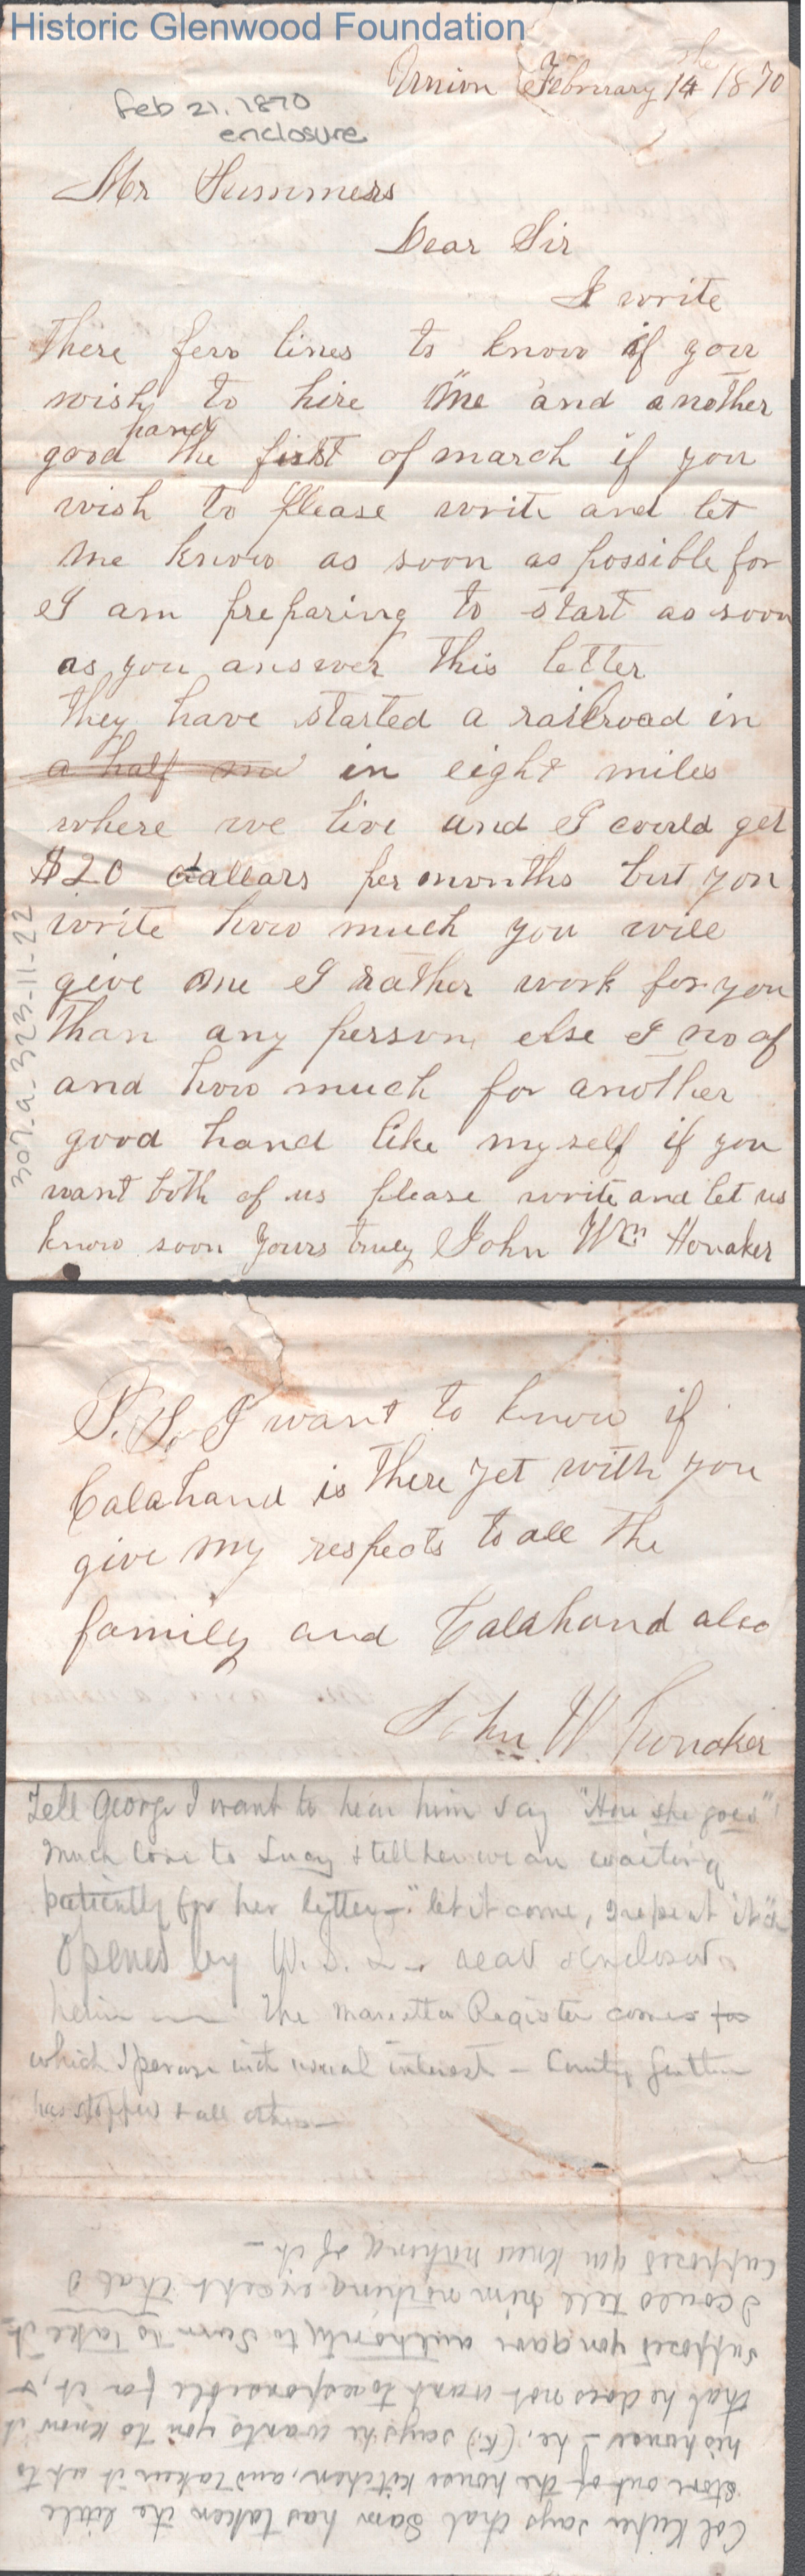 Historic Glenwood Foundation
Union February 14th 1870
Feb 21, 1870
enclosure
Mr Summers
Dear Sir
I write
there few lines to know if you
wish to hire me and another
hand
good the first of march if you
wish to please write and let
me know as soon as possible for
I am preparing to start as soon
as you answer this letter
they have started a railroad in
a half mi in eight miles
where we live and I could get
$20 dallars per months but you
write how much you will
give me I rather work for you
than any person else I no of
and how much for another
good hand like myself if you
want both of us please write and let us
know soon yours truly John Wm Honaker
307-a-323-11-22
P.S. I want to know if
Calahand is there yet with you
give my respects to all the
family and Calahand also
John W Honaker
Tell George I want to hear him say "Here she goes"!
Much love to Lucy & tell her we are waiting
patiently for her letter—"let it come, I repeat it"
Opened by W. S. L. read & enclosed
herein The Marietta Register comes
which I peruse with usual interest —
has stopped & all others—
Col Keifer says that Sam has taken the little
stove out of the house kitchen, and taken it up to
his house — he, (K.) says he wants you to know it
that he does not want to responsible for it, &
supposed you gave authority to Sam to take it—
I could tell him nothing except that I
supposed you knew nothing of it —